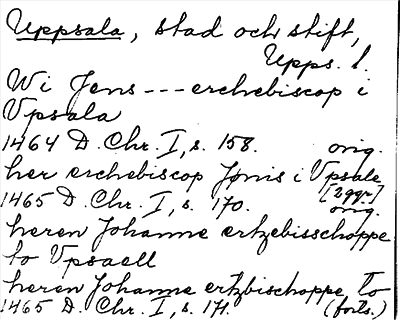 Uppsala, stad och stift,
Upps. l.
Wi Jens --- erchebiscop i
Vpsala
1464 D. Chr. I, s. 158. orig.
her erchebiscop Jønis i Vpsale
[2ggr]
1465 D. Chr. I, s. 170. orig.
heren Johanne ertzebisschoppe
to Vpsaell
heren Johanne ertzbischoppe to
1465 D. Chr. I, s. 171. (forts.)